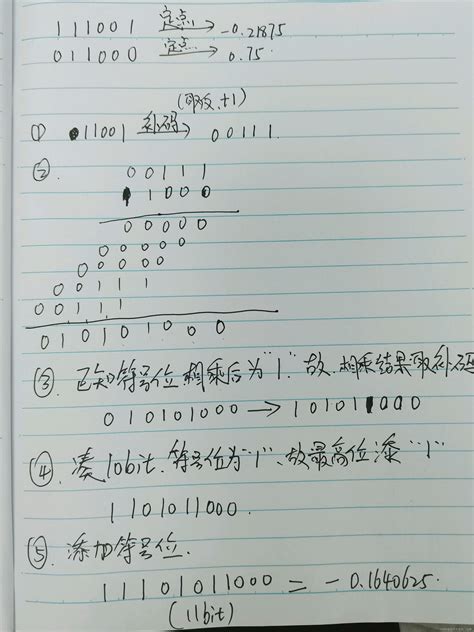 111001 定点→ -0.21875
011000 定点→ 0.75
(取反、+1)
① 11001 补码→ 00111
②. 00111
11000
00000
00000
00000
00111
00111
010101000
③. 已知符号位相乘后为"1". 故.相乘结果取补码
010101000 → 101011000
④. 凑10bit. 符号位为"1"、故最高位添"1"
1101011000.
⑤. 添加符号位.
11101011000 = -0.1640625.
(11bit)